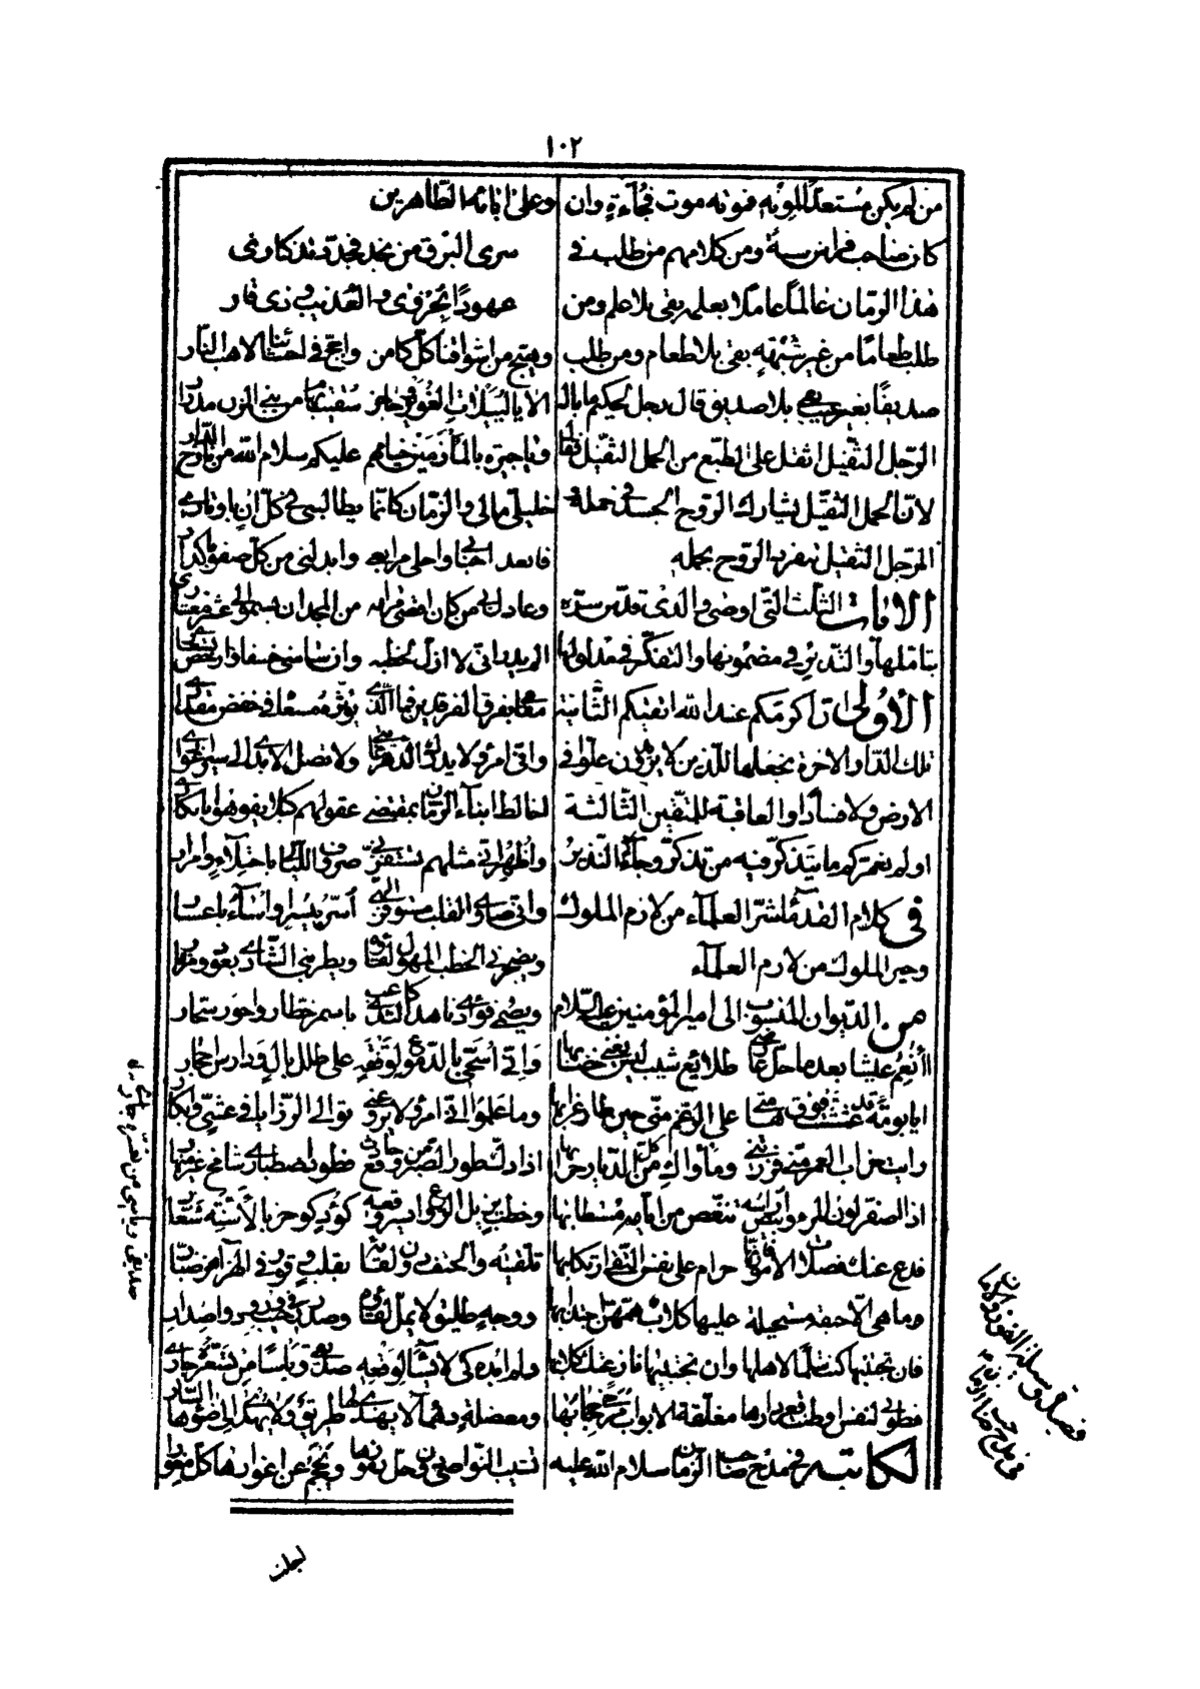 ١٠٢
من لم يكن مستعدا لموته فموته موت فجأة وان
كان صاحب فراش سنة ومن كلامهم من طلب في
هذا الزمان عالما عاملا بعلمه بقى بلا علم ومن
طلب طعاما من غير شبهة بقى بلا طعام ومن طلب
صديقا بغير عيب بقى بلا صديق قال رجل لحكيم ما بال
الرجل الثقيل اثقل على الطبع من الحمل الثقيل فقال
لان الحمل الثقيل يشارك الروح الجسد في حمله و
الرجل الثقيل تنفرد الروح بحمله
الايات الثلث التي اوصى والدى قدس سره
بتاملها والتدبر في مضمونها والتفكر في مدلولها
الأولى ان اكرمكم عند الله اتقيكم الثانية
تلك الدار الاخرة نجعلها للذين لا يريدون علوا في
الارض ولا فسادا والعاقبة للمتقين الثالثة
اولم نعمركم ما يتذكر فيه من تذكر وجاءكم النذير
في كلام القدماء شر العلماء من لازم الملوك
وخير الملوك من لازم العلماء
من الديوان المنسوب الى امير المؤمنين عليه السلام
أأنعم عيشا بعد ما حل عارضي طلائع شيب ليس يغنى خضابها
ايا بومة قد عششت فوق هامتى على الرغم منى حين طار غرابها
رايت خراب العمر منى فزرتنى وماواك من كل الديار خرابها
اذا اصفر لون المرء وابيض راسه تنغص من ايامه مستطابها
فدع عنك فضلات الامور فانها حرام على نفس التقى ارتكابها
وما هي الا جيفة مستحيلة عليها كلاب همهن اجتذابها
فان تجتنبها كنت سلما لاهلها وان تجتذبها نازعتك كلابها
فطوبى لنفس اوطنت قعر دارها مغلقة الابواب مرخى حجابها
لكاتبه في مدح صاحب الزمان سلام الله عليه
وعلى ابائه الطاهرين
سرى البرق من نجد فجدد تذكارى
عهودا بحزوى والعذيب وذى قار
وهيج من اشواقنا كل كامن واجج في احشائنا لاهب النار
الا يا لييلات الغوير وحاجر سقيت بهام من بنى المزن مدرار
ويا جيرة بالمأزمين خيامهم عليكم سلام الله من نازح الدار
خليلى مالى والزمان كانما يطالبنى في كل ان باوتار
فابعد احبابى واخلى مرابعى وابدلنى من كل صفو باكدار
وعادل بى من كان اقصى مرامه من المجد ان يسمو الى عشر معشارى
الم يدر انى لا ازال لخطبه وان سامنى خسفا وارخص اسعارى
مقامى بفرق الفرقدين فما الذى يؤثره مسعاه في خفض مقدارى
وانى امرؤ لا يدرك الدهر غايتى ولا تصل الايدى الى سبر اغوارى
اخالط ابناء الزمان بمقتضى عقولهم كيلا يفوهوا بانكارى
واظهر انى مثلهم تستفزنى صروف الليالى باحتلاء وامرار
وانى ضاوى القلب مستوفز النهى اسر بيسر او اساء باعسار
ويضجرنى الخطب المهول لقاؤه ويطربنى الشادى بعود ومزمار
ويصمى فؤادى ناهد الثدى كاعب باسمر خطار واحور سحار
وانى اسخى بالدموع لوقفة على طلل بال ودارس احجار
وما علموا انى امرؤ لا يروعنى توالى الرزايا في عشى وابكار
اذا دك طور الصبر من وقع حادث فطود اصطبارى شامخ غير منهار
وخطب يزيل الروع ايسر وقعه كؤد كوخز بالاسنة شعار
تلقيته والحتف دون لقائه بقلب وقور في الهزاهز صبار
ووجه طليق لا يمل لقاؤه وصدر رحيب في ورود واصدار
ولم ابده كى لا يساء لوقعه صديقى وياسى من تعسره جارى
ومعضلة دهماء لا يهتدى لها طريق ولا يهدى الى ضوئها السارى
تشيب النواصى دون حل رموزها ويحجم عن اغوارها كل مغوار
صديقى وياسى من تعسره جارى